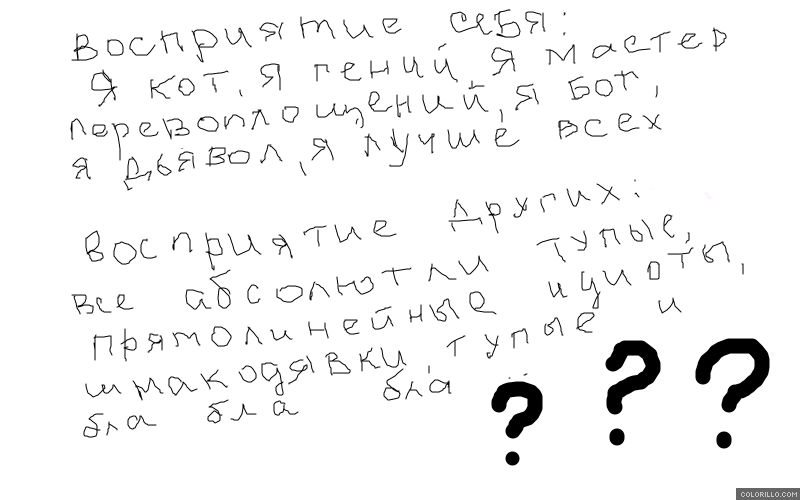 восприятие себя:
я кот, я гений, я мастер
перевоплощений, я бог,
я дьявол, я лучше всех
восприятие других:
все абсолютли тупые,
прямолинейные идиоты,
шмакодявки, тупые и
бла бла бла ..
? ? ?
COLORILLO.COM